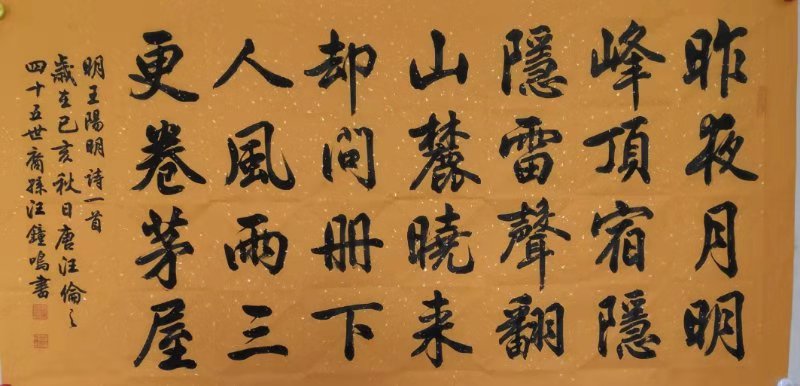 昨夜月明
峰頂宿隱
隱雷聲翻
山麓曉来
却問册下
人風雨三
更卷茅屋
明王陽明诗一首
歲在己亥秋日唐汪倫之
四十五世裔孫汪鐘鳴書